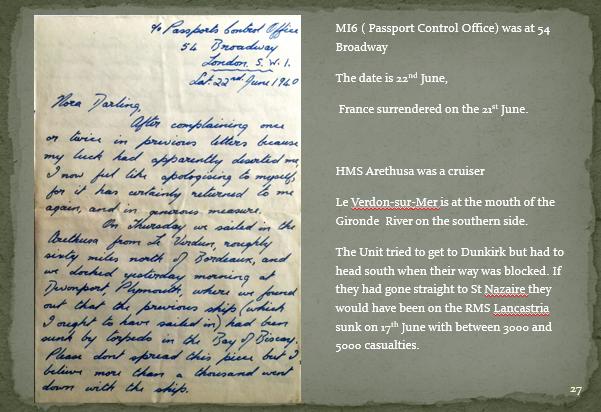 c/o Passports Control Office
54 Broadway
London. S.W.1.
Sat. 22nd June 1940
Nora Darling,
After complaining once
or twice in previous letters because
my luck had apparently deserted me,
I now feel like apologising to myself
for it has certainly returned to me
again, and in generous measure.
On Thursday we sailed in the
Arethusa from Le Verdun, roughly
sixty miles north of Bordeaux, and
we docked yesterday morning at
Devonport, Plymouth, where we found
out that the previous ship (which
I ought to have sailed in) had been
sunk by torpedo in the Bay of Biscay.
Please dont spread this piece but I
believe more than a thousand went
down with the ship.
MI6 ( Passport Control Office) was at 54
Broadway
The date is 22nd June,
France surrendered on the 21st June.
HMS Arethusa was a cruiser
Le Verdon-sur-Mer is at the mouth of the
Gironde River on the southern side.
The Unit tried to get to Dunkirk but had to
head south when their way was blocked. If
they had gone straight to St Nazaire they
would have been on the RMS Lancastria
sunk on 17th June with between 3000 and
5000 casualties.
27